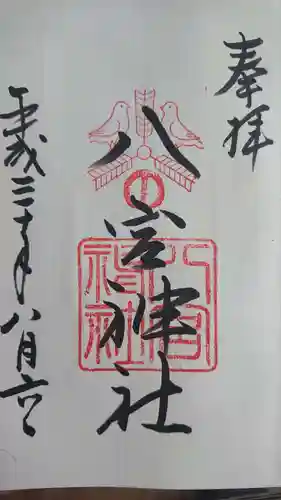 奉拝
八宮神社
八宮神社
平成三十年八月六日